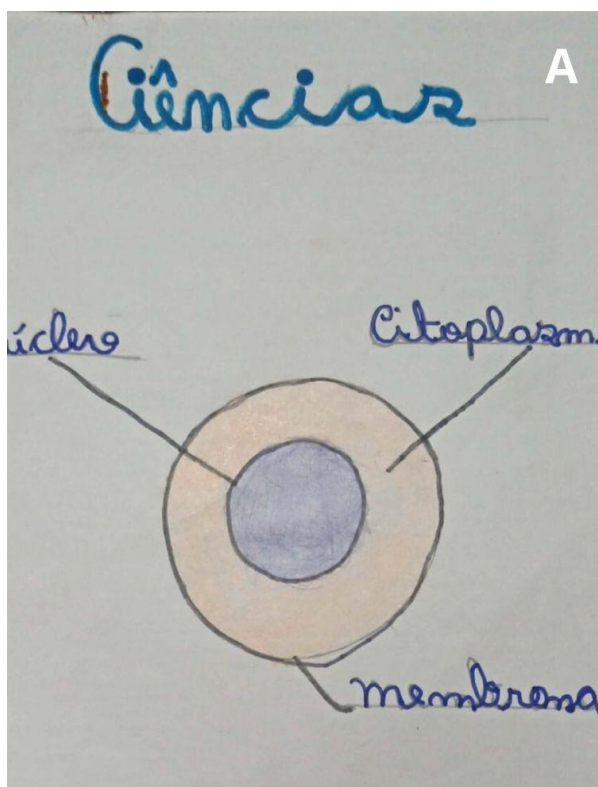 Ciências
A
úcleo
Citoplasm
membrana